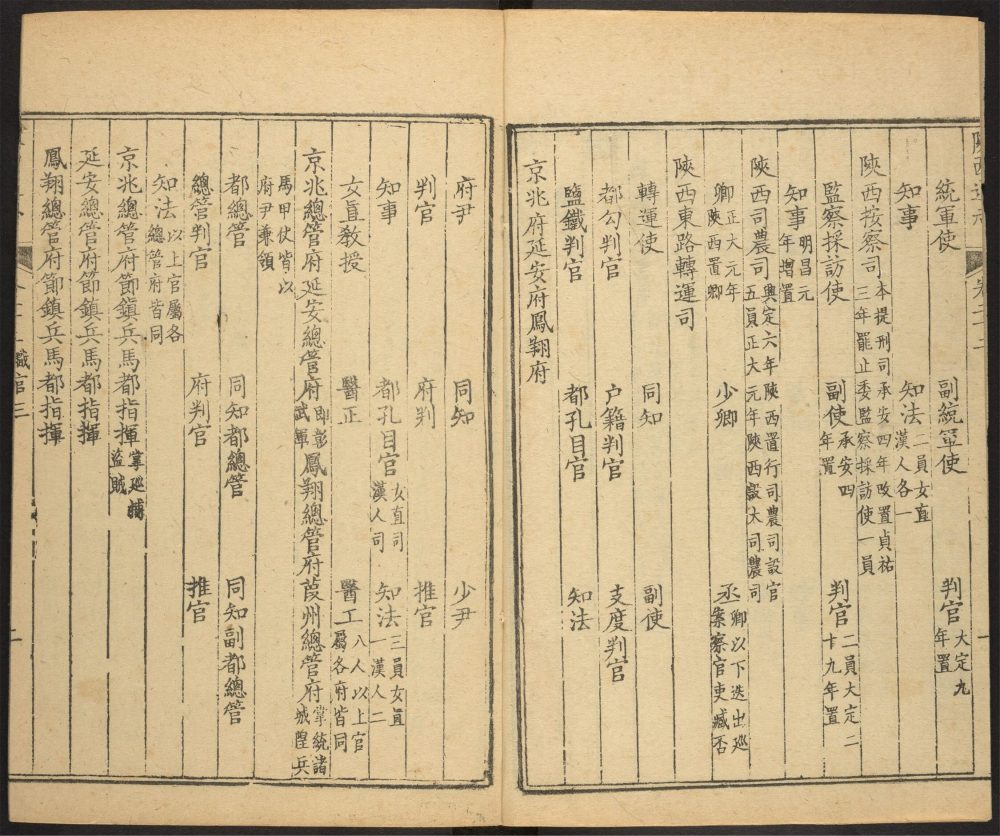 陝西通志 卷二十二
統軍使 副統軍使 判官大定九年置
知事 知法二員女直漢人各一
陝西按察司本提刑司承安四年改置貞祐三年罷止委監察採訪使一員
監察採訪使 副使承安四年置 判官二員大定二十九年置
知事明昌元年增置
陝西司農司興定六年陝西置行司農司設官五員正大元年陝西設大司農司
卿正大元年陝西置卿 少卿 丞卿以下迭出巡案察官吏臧否
陝西東路轉運司
轉運使 同知 副使
都勾判官 户籍判官 支度判官
鹽鐵判官 都孔目官 知法
京兆府延安府鳳翔府
府尹 同知 少尹
判官 府判 推官
知事 都孔目官女直司漢人司 知法三員女直一漢人二
女直教授 醫正 醫工八人以上官屬各府皆同
京兆總管府延安總管府即彰武軍鳳翔總管府葭州總管府掌統諸城隍兵
馬甲仗皆以府尹兼領
都總管 同知都總管 同知副都總管
總管判官 府判官 推官
知法以上官屬各總管府皆同
京兆總管府節鎮兵馬都指揮掌巡捕盜賊
延安總管府節鎮兵馬都指揮
鳳翔總管府節鎮兵馬都指揮
職官三